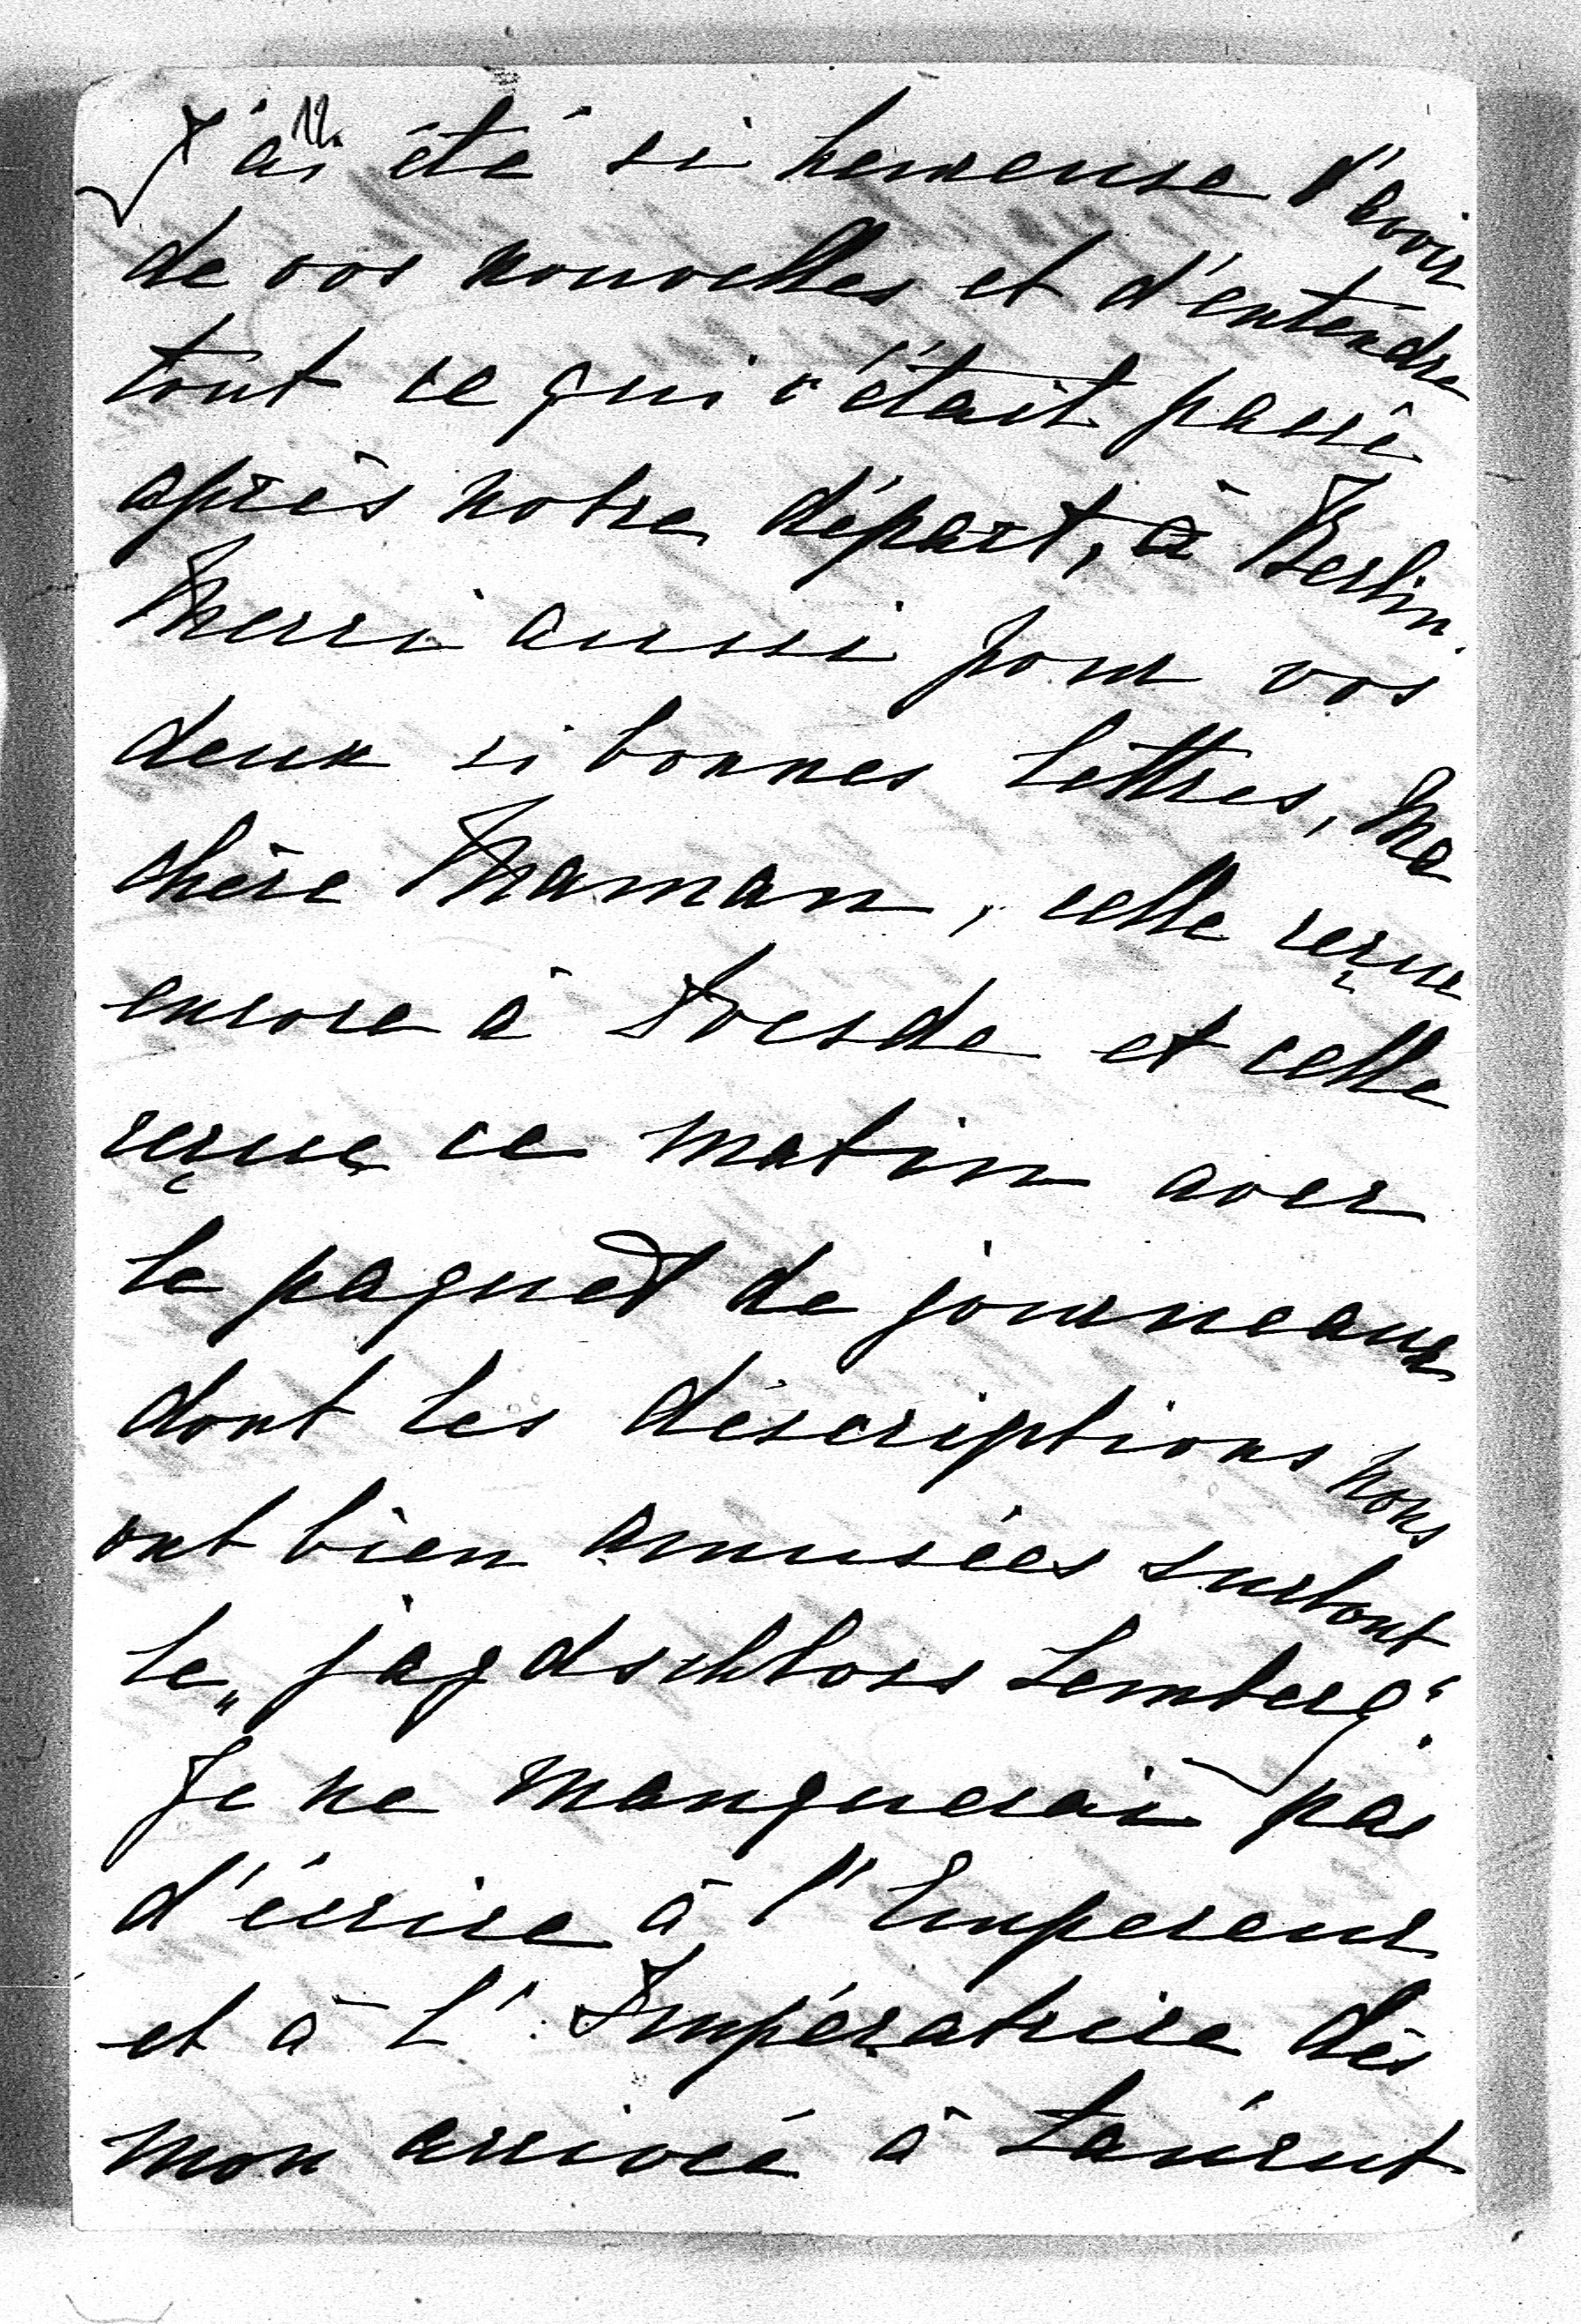 12.
J'ai été si heureuse d'avoir
de vos nouvelles et d'entendre
tout ce qui s'était passé
après notre départ, à Berlin.
Merci aussi pour vos
deux si bonnes lettres, Ma
chère Maman, celle reçue
encore à Soesde et celle
reçue ce matin avec
le paquet de journeaux
dont les déscriptions nous
ont bien amusées surtout
le „jagdschloss Lemberg“.
Je ne manquerai pas
d'écrire à l'Empereur
et à l'Impératrice dès
mon arrivée à